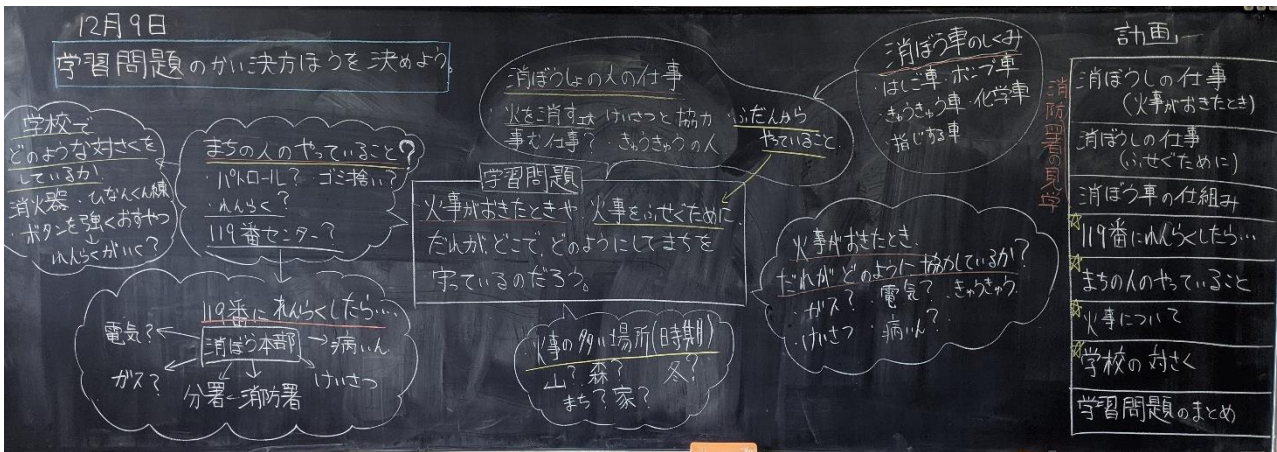 12月9日
学習問題のかい決方ほうを決めよう。
学校で
どのような対さくを
しているか
消火器・ひなんくん練
・ボタンを強くおすやつ
れんらくがいく?
まちの人のやっていること?
・パトロール? ゴミ捨い?
・れんらく?
119番センター?
119番にれんらくしたら…
消ぼう本部
電気?
ガス?
分署
消防署
けいさつ
病いん
消ぼうしょの人の仕事
・火を消す
・けいさつと協力
事む仕事?
・きゅうきゅうの人
・ふだんから
やっていること
学習問題
火事がおきたときや、火事をふせぐために、
だれが、どこで、どのようにしてまちを
守っているのだろう。
火事の多い場所(時期)
山? 森? 冬?
まち? 家?
消ぼう車のしくみ
・はしご車・ポンプ車
・きゅうきゅう車・化学車
・指じする車
火事がおきたとき、
だれがどのように協力しているか?
・ガス? ・電気? ・きゅうきゅう
・けいさつ ・病いん?
消防署の見学
計画
消ぼうしの仕事
(火事がおきたとき)
消ぼうしの仕事
(ふせぐために)
消ぼう車の仕組み
119番にれんらくしたら…
まちの人のやっていること
火事について
学校の対さく
学習問題のまとめ